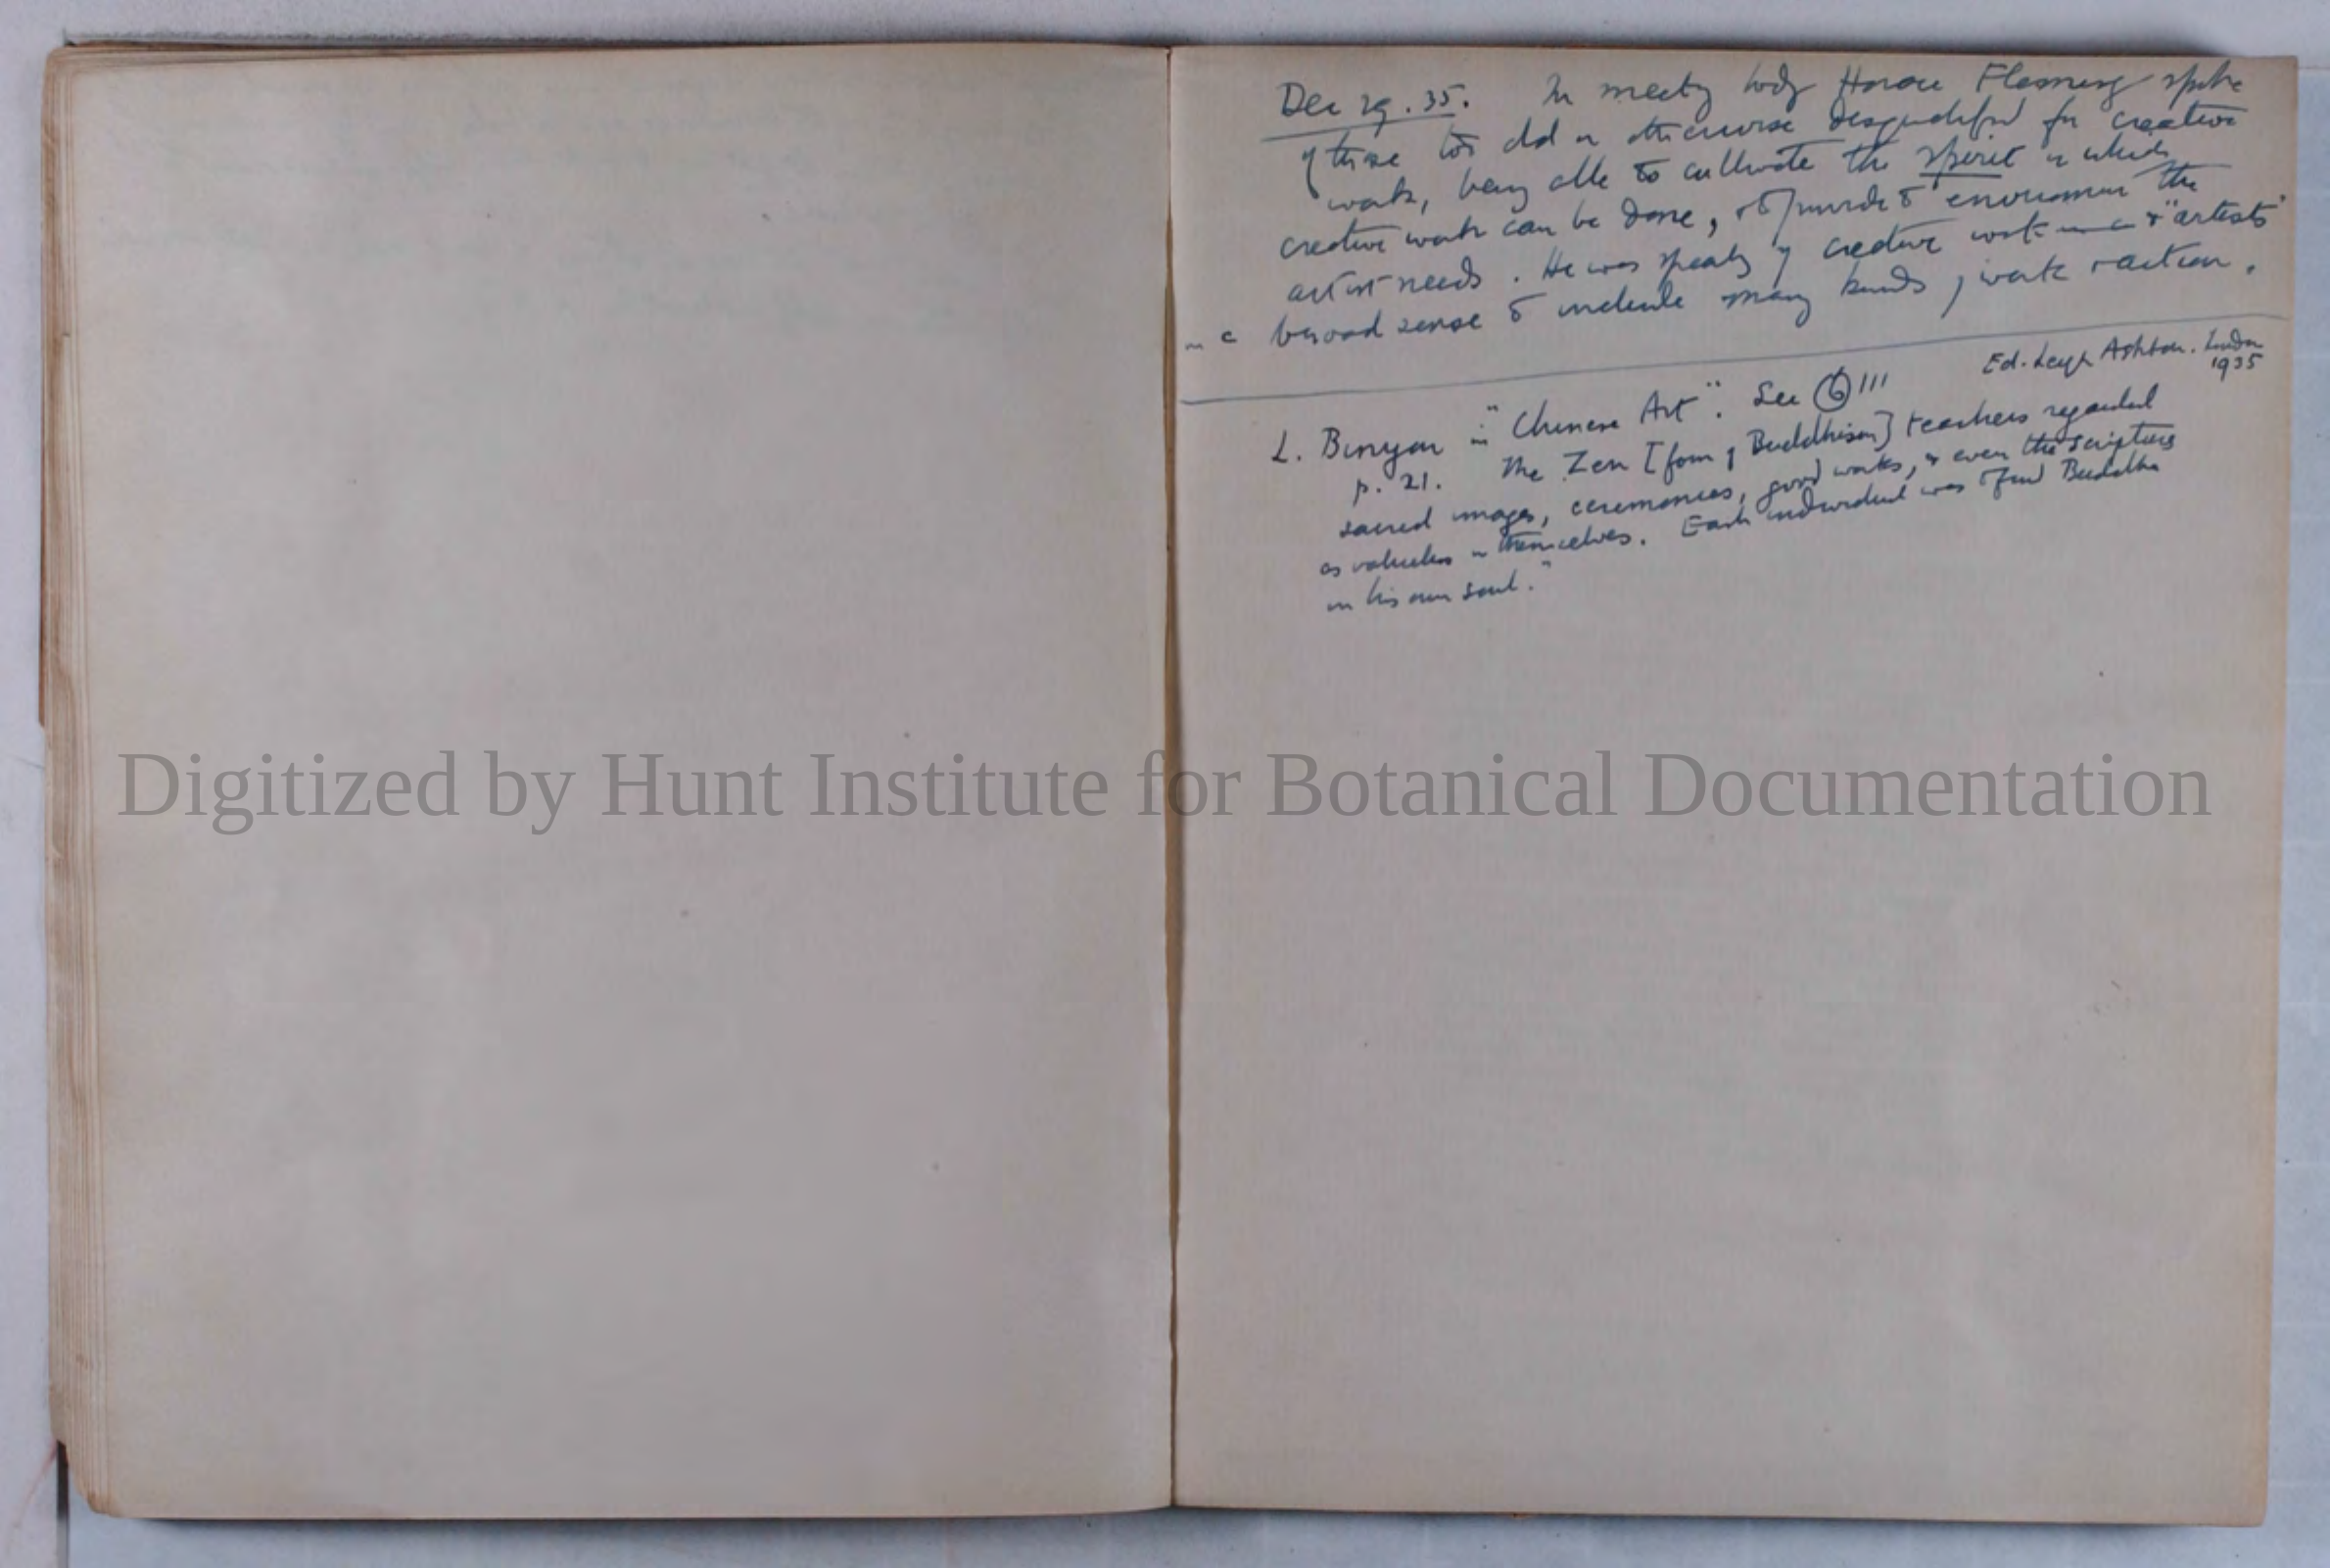 Dec 29.35. In meetg tody Horace Fleming spoke
of those too old or otherwise disqualified for creative
work, being able to cultivate the spirit in which
creative work can be done, & to provide the environmen the
artist needs. He was speakg of creative work in a & "artists"
in a broad sense to include many kinds of work & action.
Ed. Leigh Ashton. London
1935
L. Binyon in "Chinese Art". See 6 111
p. 21. The Zen [form of Buddhism] teachers regarded
sacred images, ceremonies, good works, & even the scriptures
as valueless in themselves. Each individual was to find Buddha
in his own soul."
Digitized by Hunt Institute for Botanical Documentation